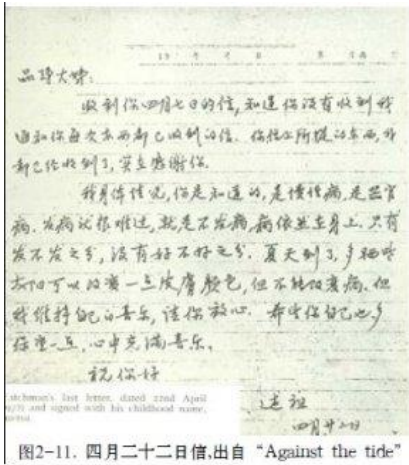 19 年 月 日 第 页
品琤大姊:
收到你四月七日的信,知道你没有收到我
通知你每次东西都已收到的信。你信上所提的东西,我
都已经收到了,实在感谢你。
我身体情况,你是知道的,是慢性病,是器官
病。发病就很难过,就是不发病,病依然在身上。只有
发不发之分,没有好不好之分。夏天到了,多晒些
太阳可以改变一点皮肤颜色,但不能改变病。但
我维持自己的喜乐,请你放心。希望你自己也多
保重一点,心中充满喜乐。
祝你好
述祖
四月廿二日
atchman's last letter, dated 22nd April
1972 and signed with his childhood name,
图2-11. 四月二十二日信,出自 “Against the tide”